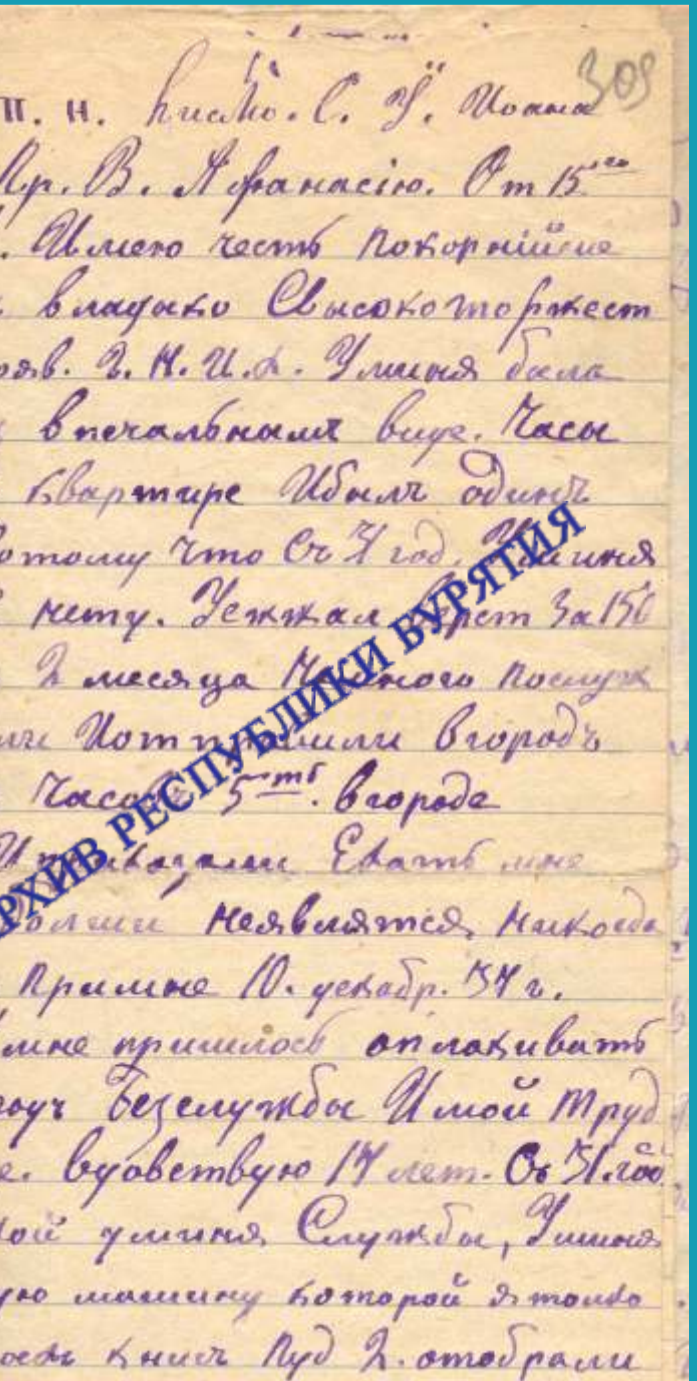 309
п. н. писмо. С. У. Иоана
Пр. В. Афанасію. От 15го
. Имею честь покорнійше
владыко Свысокоторжест
рав. Г. Н. И. Х. Уминя была
впечальнамъ виде. Часы
квартире Ибылъ одинъ
отому что Съ 31 год. Уминя
нету. Уежжал Верст За 150
2 месяца послуж
ли Иотправили Вгородъ
Часовъ 5ть. вгороде
Иприказали Ехать мне
больши неявлятся, никогда
Примне 10. декабр. 37 г.
мне пришлось оплакивать
Безслужбы И мой труд
е. вдовствую 17 лет. Съ 31. год
кой уминя Службы, Уминя
ую машину которой я толко
книгъ Пуд 2. отобрали
АРХИВ РЕСПУБЛИКИ БУРЯТИЯ